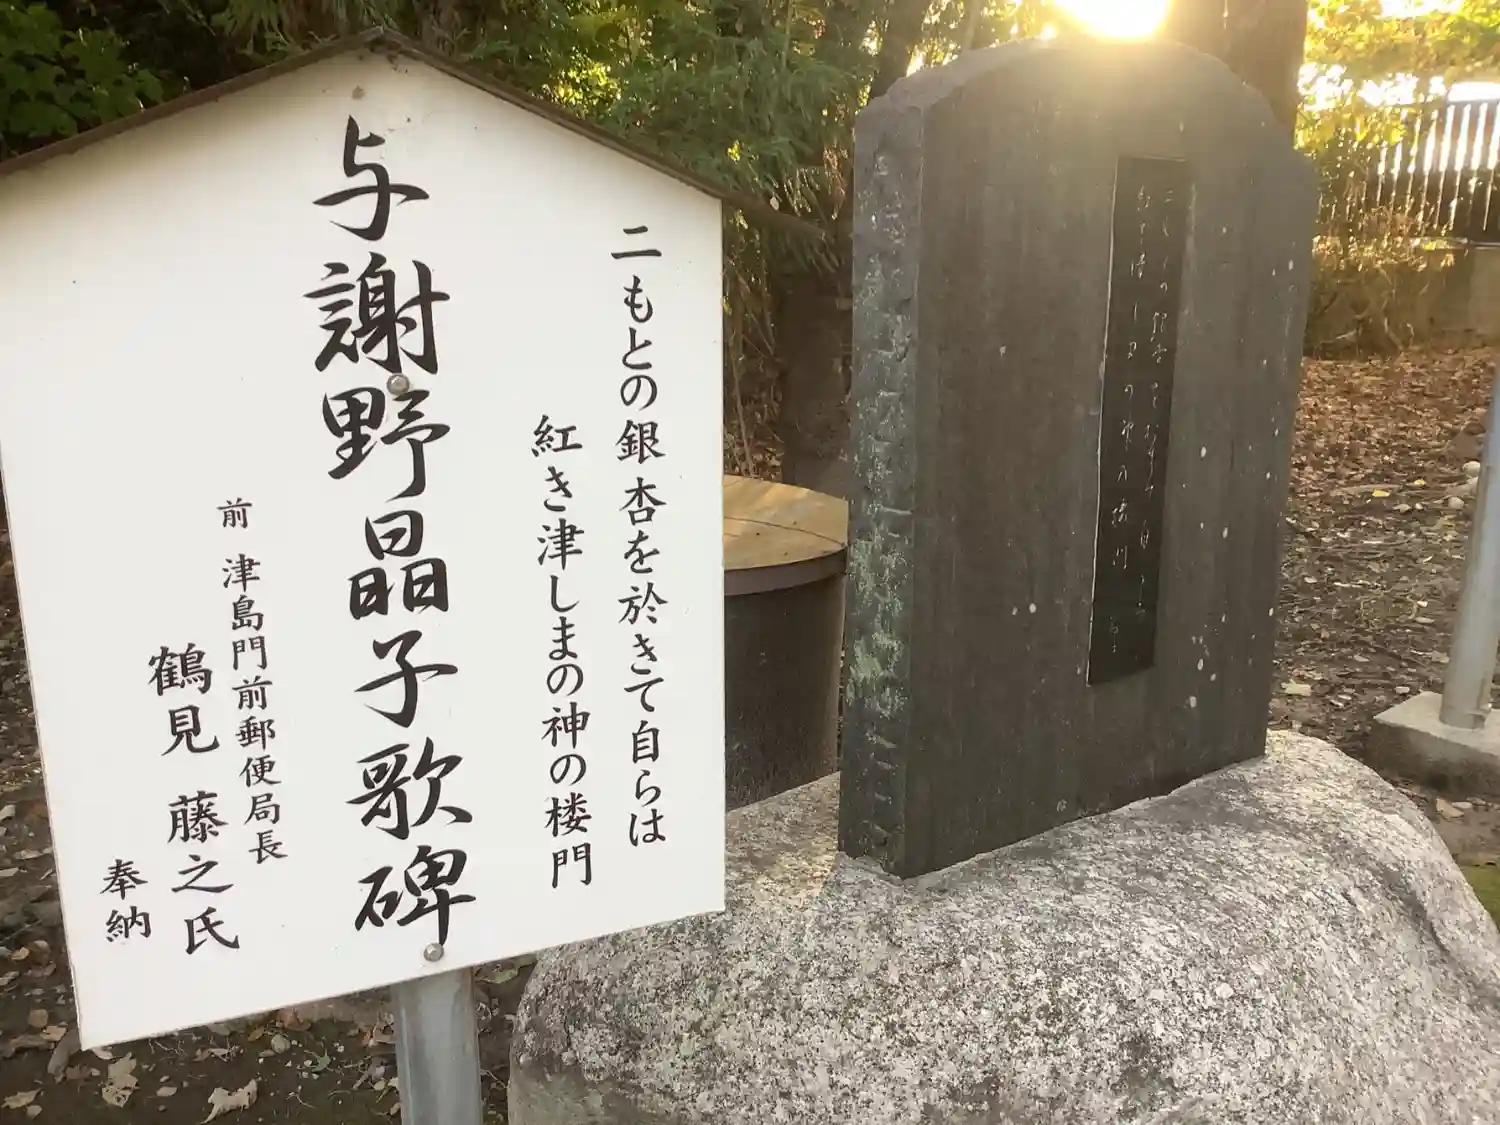 二もとの銀杏を於きて自らは
紅き津しまの神の楼門
与謝野晶子歌碑
前 津島門前郵便局長
鶴見 藤之氏
奉納